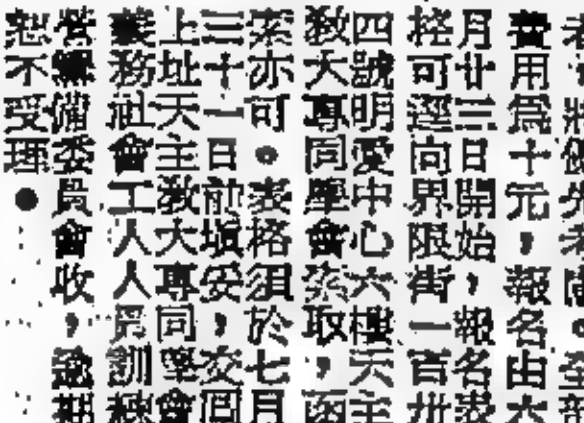 者，將優先考慮。全部
費用爲十元，報名由六
月廿三日開始，報名表
格可逕向界限街一百卅
四號明愛中心六樓天主
敎大專同學會索取，函
索亦可。表格須於七月
三十一日前塡妥，交回
上址天主敎大專同學會
義務社會工人人員訓練
營籌備委員會收，逾期
恕不受理●